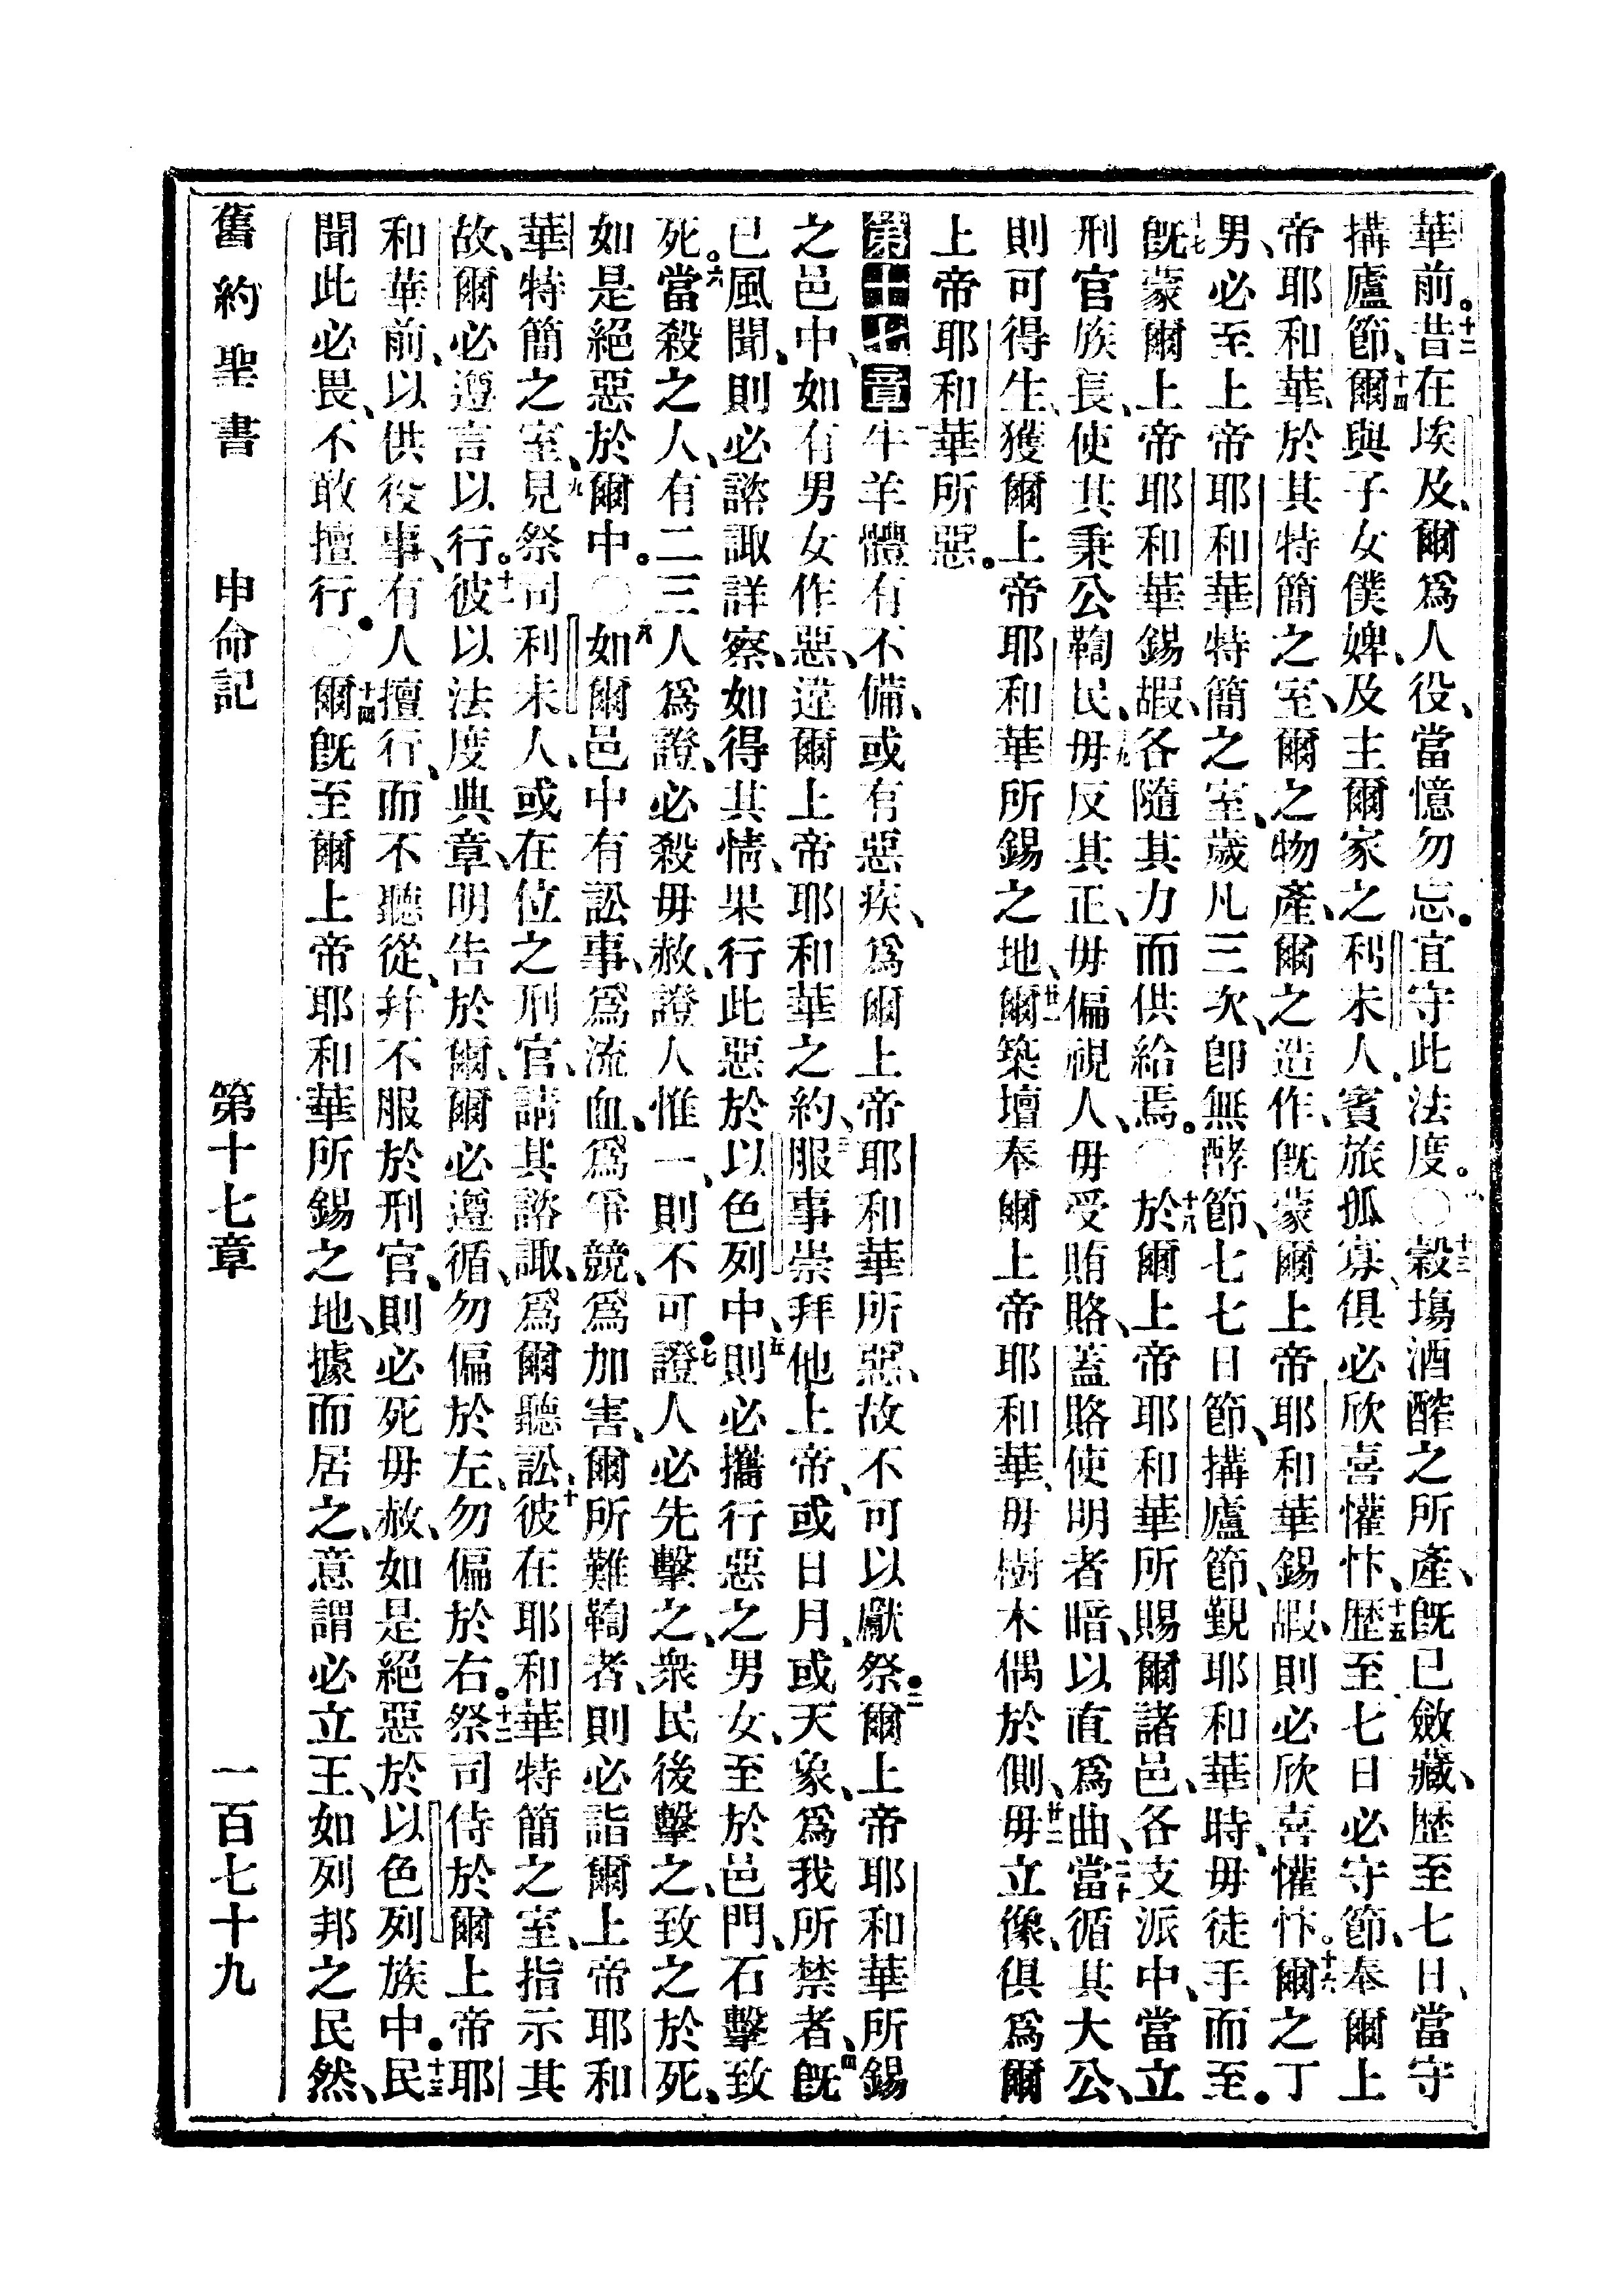 華前。十二昔在埃及、爾爲人役、當憶勿忘。宜守此法度。○十三穀場酒醡之所產、既已斂藏、歷至七日、當守
搆廬節、十四爾與子女僕婢、及主爾家之利未人、賓旅孤寡、俱必欣喜懽忭、十五歷至七日必守節、奉爾上
帝耶和華、於其特簡之室、爾之物產、爾之造作、既蒙爾上帝耶和華錫嘏、則必欣喜懽忭。十六爾之丁
男、必至上帝耶和華特簡之室、歲凡三次、卽無酵節、七七日節、搆廬節、覲耶和華時、毋徒手而至。
十七既蒙爾上帝耶和華錫嘏、各隨其力而供給焉。○十八於爾上帝耶和華所賜爾諸邑、各支派中、當立
刑官族長、使其秉公鞫民、十九毋反其正、毋偏視人、毋受賄賂、蓋賂使明者暗、以直爲曲、二十當循其大公、
則可得生、獲爾上帝耶和華所錫之地、廿一爾築壇奉爾上帝耶和華、毋樹木偶於側、廿二毋立像、俱爲爾
上帝耶和華所惡。
第十七章一牛羊體有不備、或有惡疾、爲爾上帝耶和華所惡、故不可以獻祭。二爾上帝耶和華所錫
之邑中、如有男女作惡、違爾上帝耶和華之約、三服事崇拜他上帝、或日月、或天象、爲我所禁者、四既
已風聞、則必諮諏詳察、如得其情、果行此惡於以色列中、五則必攜行惡之男女、至於邑門、石擊致
死。六當殺之人、有二三人爲證、必殺毋赦、證人惟一、則不可。七證人必先擊之、衆民後擊之、致之於死、
如是絕惡於爾中。○八如爾邑中有訟事、爲流血、爲爭競、爲加害、爾所難鞫者、則必詣爾上帝耶和
華特簡之室、九見祭司利未人、或在位之刑官、請其諮諏、爲爾聽訟、十彼在耶和華特簡之室、指示其
故、爾必遵言以行。十一彼以法度典章、明告於爾、爾必遵循、勿偏於左、勿偏於右。十二祭司侍於爾上帝耶
和華前、以供役事、有人擅行、而不聽從、幷不服於刑官、則必死毋赦、如是絕惡於以色列族中。十三民
聞此必畏、不敢擅行。○十四爾既至爾上帝耶和華所錫之地、據而居之、意謂必立王、如列邦之民然、
舊約聖書 申命記 第十七章 一百七十九